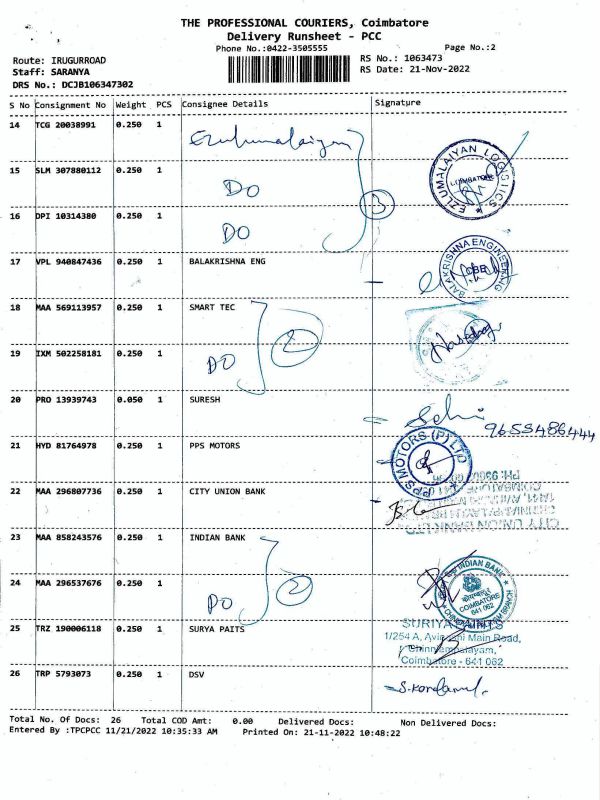 THE PROFESSIONAL COURIERS, Coimbatore
Delivery Runsheet - PCC
Phone No.:0422-3505555
Page No.:2
Route: IRUGURROAD
RS No.: 1063473
Staff: SARANYA
RS Date: 21-Nov-2022
DRS No.: DCJB106347302
S No Consignment No Weight PCS Consignee Details Signature
14 TCG 20038991 0.250 1 Ezhumalaiyan
15 SLM 307880112 0.250 1 DO
EZLUMALAIYAN LOGISTICS
COIMBATORE
3
16 DPI 10314380 0.250 1 DO
17 VPL 940847436 0.250 1 BALAKRISHNA ENG
BALAKRISHNA ENGINEERING
CBE
18 MAA 569113957 0.250 1 SMART TEC
2
19 IXM 502258181 0.250 1 DO
20 PRO 13939743 0.050 1 SURESH
9655486444
21 HYD 81764978 0.250 1 PPS MOTORS
PPS MOTORS (P) LTD
22 MAA 296807736 0.250 1 CITY UNION BANK
CITY UNION BANK LTD
23 MAA 858243576 0.250 1 INDIAN BANK
2
24 MAA 296537676 0.250 1 DO
INDIAN BANK
COIMBATORE
641 062
25 TRZ 190006118 0.250 1 SURYA PAITS
SURIYA PAINTS
1/254 A, Avinashi Main Road,
Chinniempalayam,
Coimbatore - 641 062
26 TRP 5793073 0.250 1 DSV
Total No. Of Docs: 26 Total COD Amt: 0.00 Delivered Docs: Non Delivered Docs:
Entered By :TPCPCC 11/21/2022 10:35:33 AM Printed On: 21-11-2022 10:48:22